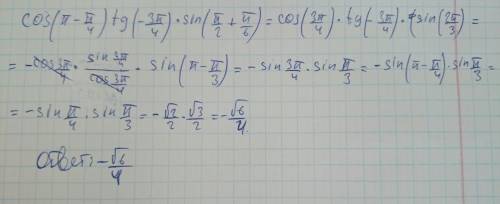 cos(π-π/4)tg(-3π/4)·sin(π/2+π/6)=cos(3π/4)·tg(-3π/4)·sin(2π/3)=
=-cos3π/4·sin3π/4/cos3π/4·sin(π-π/3)=-sin3π/4·sinπ/3=-sin(π-π/4)·sinπ/3=
=-sinπ/4·sinπ/3=-√2/2·√3/2=-√6/4
Ответ:-√6/4